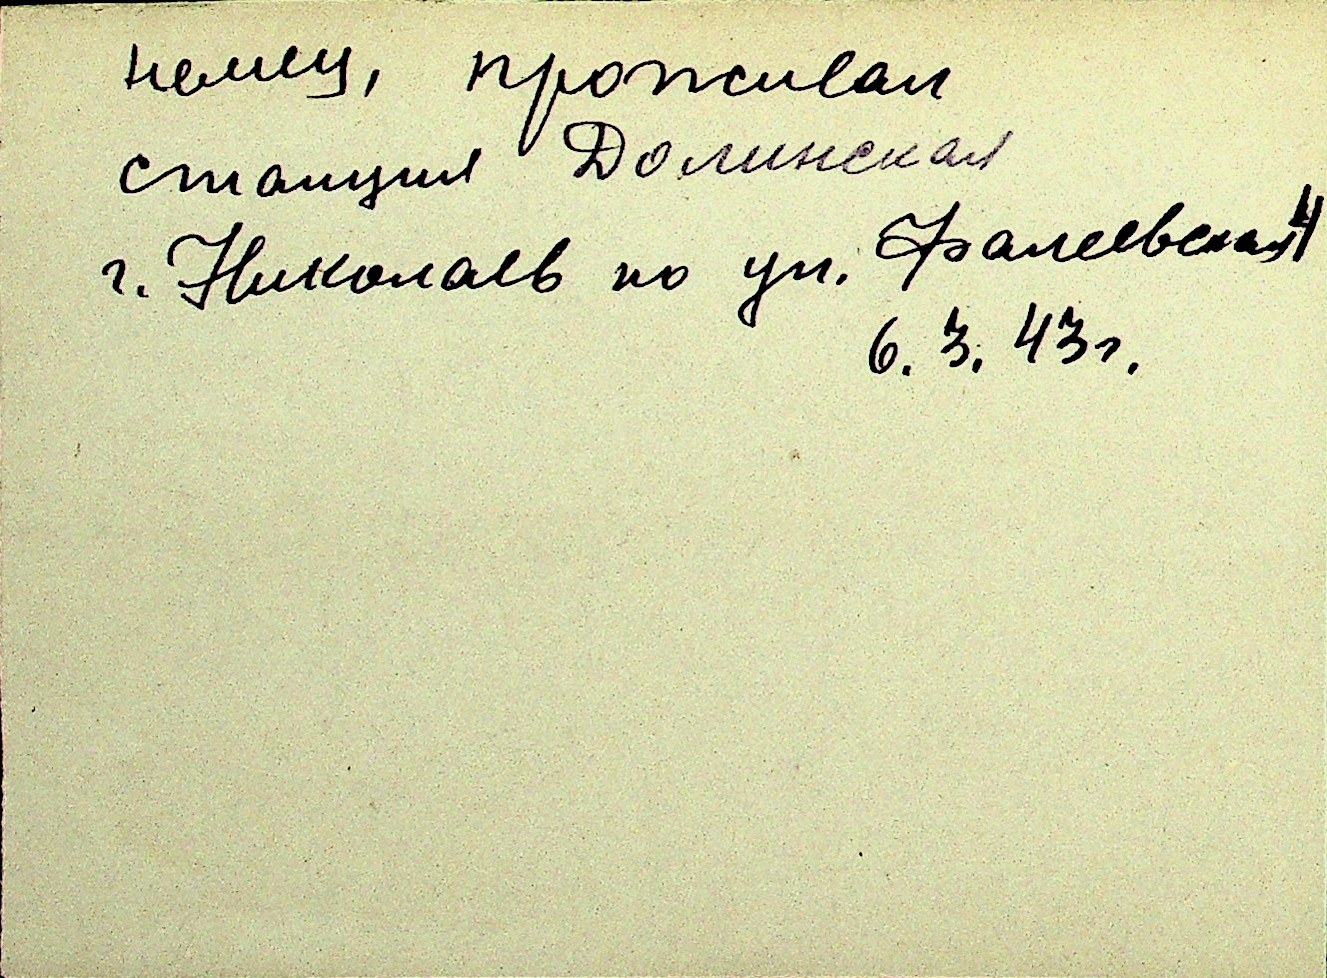 немец, проживал
станция Долинская
г. Николаев по ул. Фалеевская 4
6. 3. 43г.